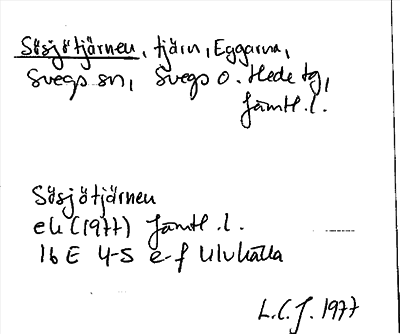 Sösjötjärnen, tjärn, Eggarna,
Svegs sn, Svegs o. Hede tg,
Jämtl. l.
Sösjötjärnen
ek (1977) Jämtl. l.
16 E 4-5 e-f Ulvkälla
L.C.J. 1977